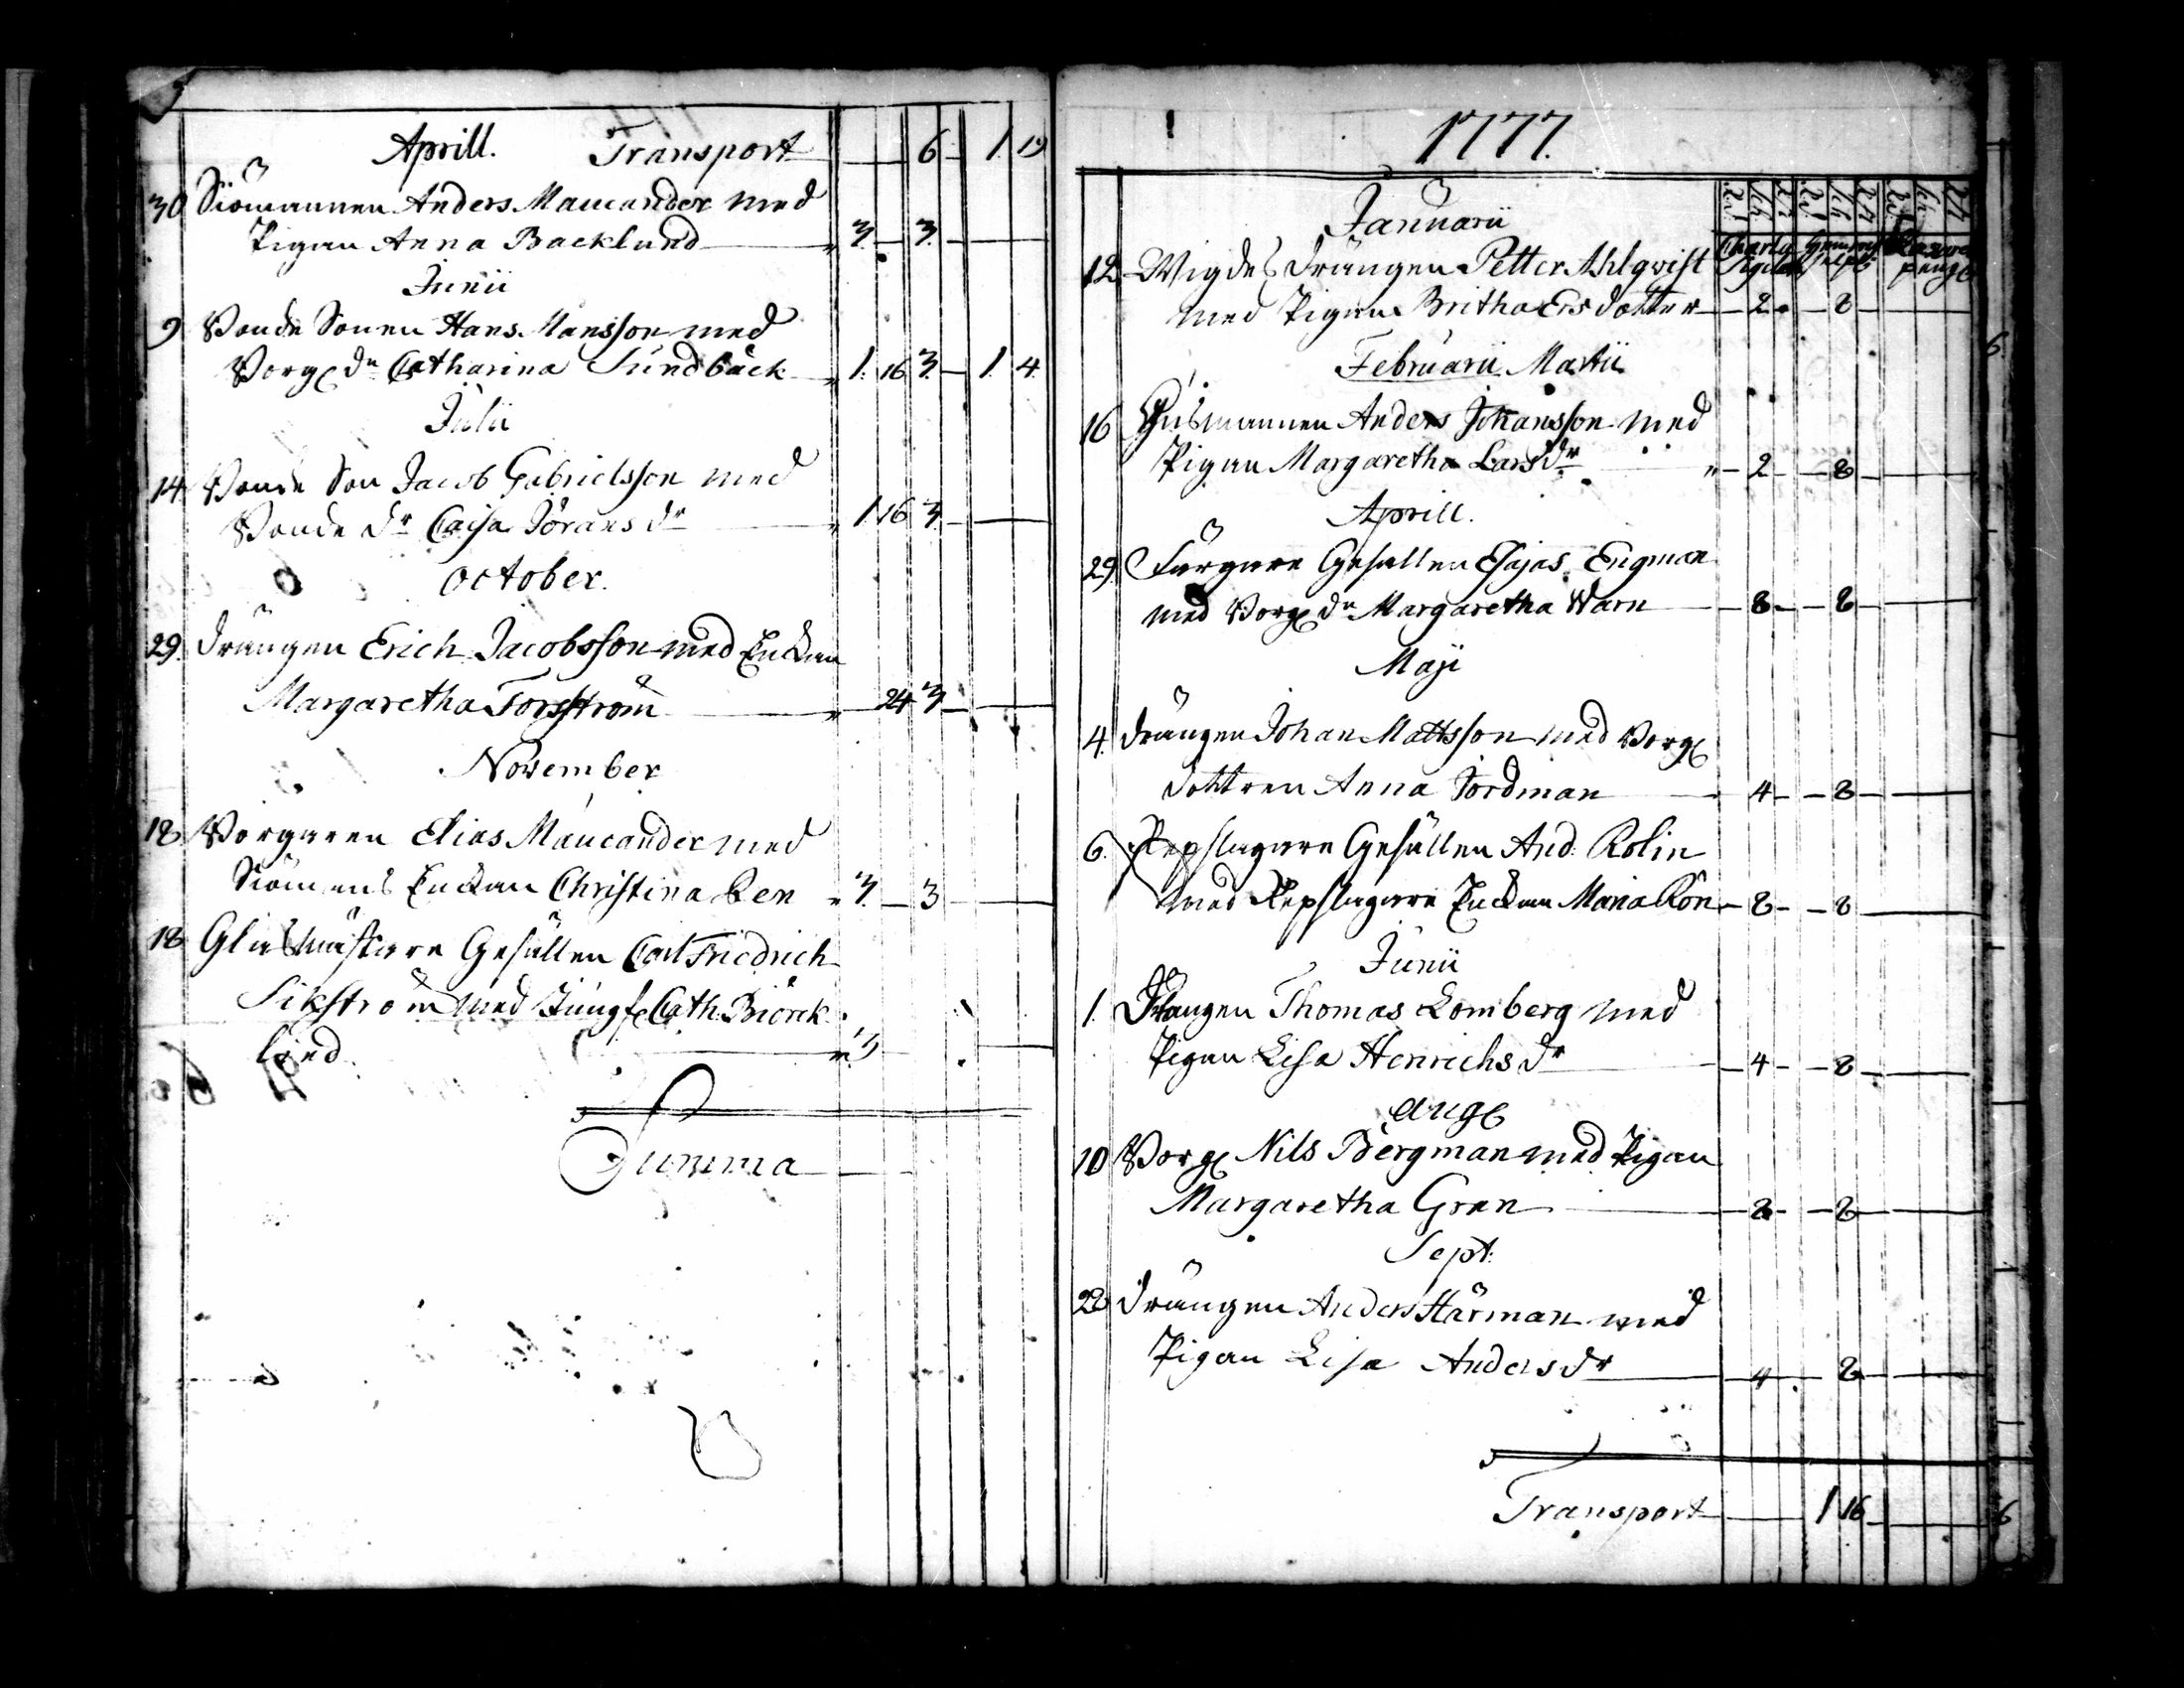 Aprill. Transport 6 1 19
30 Siömannen Anders Maucander med
Pigan Anna Backlund 3 3
Junii
9 Bonde Sonen Hans Hansson med
Borge dr Catharina Sundbäck 1 16 3 1 4
Julii
14 Bonde Son Jacob Gabrielsson med
Bonde dr Caisa Jörans dr 1 16 3
October.
29. Drängen Erich Jacobsson med Enckan
Margaretha Forsström 24 3
November
18 Borgaren Elias Maucander med
Siömans Enckan Christina Ren 3 3
18 Glasmästare Gesällen Carl Friedrich
Sikström med Jungf Cath. Biörck
lind 3
Summa
1777.
Januarii
Charta Sigill
12 Wigdes Drängen Petter Ahlqwist
med Pigan Britha Ersdotter 2 8
Februarii Martii
16 Husmannen Anders Johansson med
Pigan Margaretha Lars dr 2 8
Aprill.
29 Färgare Gesällen Esajas Engman
med Borg dr Margaretha Warn 8 8
Maji
4. Drängen Johan Mattsson med Borg
dottren Anna Jordman 4 8
6. Repslagare Gesällen And. Rolin
med Repslagare Enckan Maria Rön 8 8
Junii
1. Drängen Thomas Lomberg med
Pigan Lisa Henrichs dr 4 8
Aug
10 Borg Nils Bergman med Pigan
Margaretha Gran 8 8
Sept:
28 Drängen Anders Härman med
Pigan Lisa Anders dr 4 8
Transport 1 16